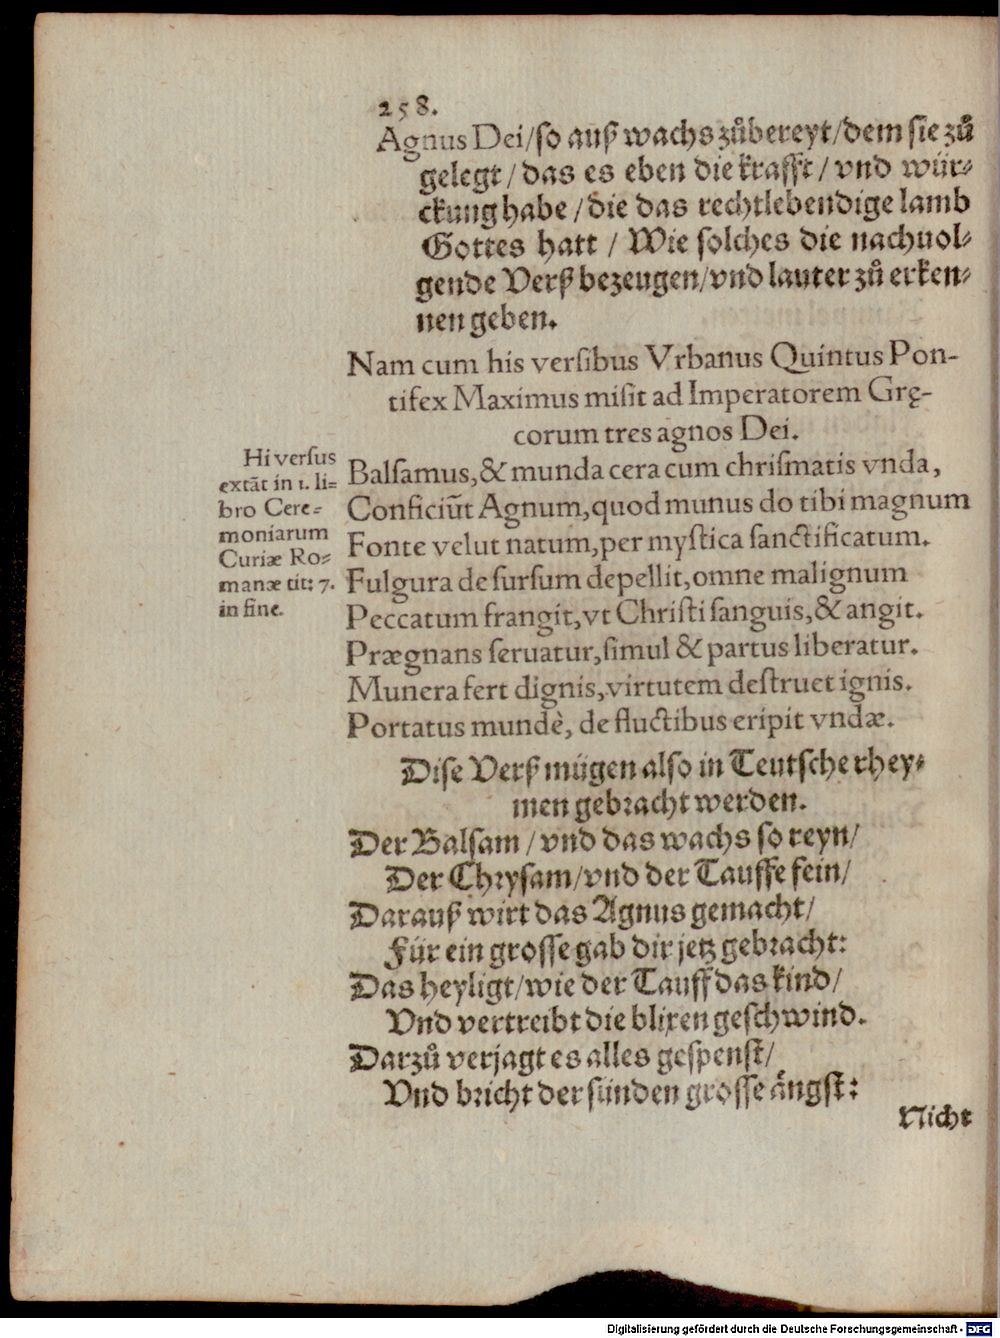 258.
Agnus Dei/so auß wachs zůbereyt/dem sie zů
gelegt / das es eben die krafft / vnd wür⸗
ckung habe / die das rechtlebendige lamb
Gottes hatt / Wie solches die nachuol⸗
gende Verß bezeugen/vnd lauter zů erken⸗
nen geben.
Nam cum his versibus Vrbanus Quintus Pon-
tifex Maximus misit ad Imperatorem Grę-
corum tres agnos Dei.
Hi versus
extāt in 1. li⸗
bro Cere⸗
moniarum
Curiæ Ro⸗
manæ tit: 7.
in fine.
Balsamus,& munda cera cum chrismatis vnda,
Conficiūt Agnum,quod munus do tibi magnum
Fonte velut natum,per mystica sanctificatum.
Fulgura de sursum depellit,omne malignum
Peccatum frangit,vt Christi sanguis,& angit.
Prægnans seruatur,simul & partus liberatur.
Munera fert dignis,virtutem destruet ignis.
Portatus mundè, de fluctibus eripit vndæ.
Dise Verß mügen also in Teutsche rhey⸗
men gebracht werden.
Der Balsam / vnd das wachs so reyn/
Der Chrysam/vnd der Tauffe fein/
Darauß wirt das Agnus gemacht/
Für ein grosse gab dir jetz gebracht:
Das heyligt/wie der Tauff das kind/
Vnd vertreibt die blixen geschwind.
Darzů verjagt es alles gespenst/
Vnd bricht der sünden grosse ängst:
Nicht
Digitalisierung gefördert durch die Deutsche Forschungsgemeinschaft - DFG